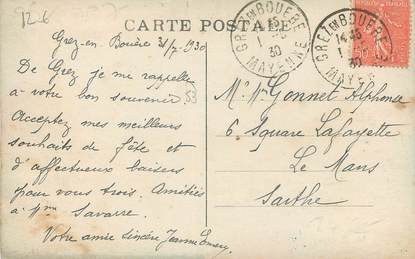 92-6
CARTE POSTALE
GREZ EN BOUERE
15
1 -8
30
MAYENNE
GREZ EN BOUERE
14 45
1 -8
30
MAYENNE
Grez-en Bouère 31/7 1930
De Grez je me rappelle
a votre bon souvenir
Acceptez mes meilleurs
souhaits de fête et
d'affectueux baisers
pour vous trois. Amitiés
a Mme Savarre.
Votre amie sincère Jeanne
53
M. Mme Gonnet Alphonse
6 Square Lafayette
Le Mans
Sarthe